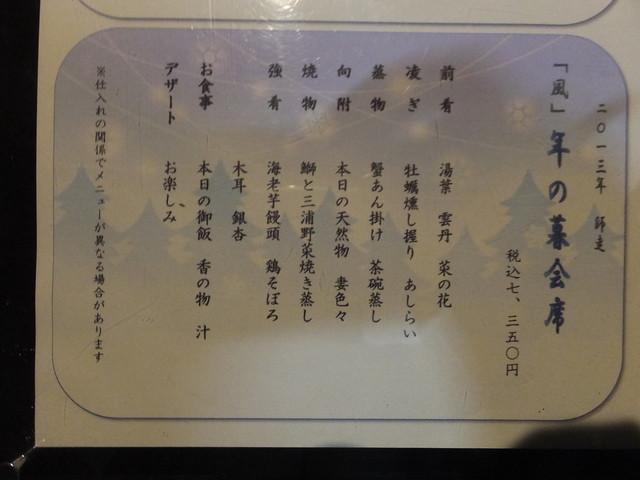 二〇一三年 師走
「風」年の暮会席
税込七、三五〇円
前肴 湯葉 雲丹 菜の花
凌ぎ 牡蠣燻し握り あしらい
蒸物 蟹あん掛け 茶碗蒸し
向附 本日の天然物 妻色々
焼物 鰤と三浦野菜焼き蒸し
強肴 海老芋饅頭 鶏そぼろ
木耳 銀杏
お食事 本日の御飯 香の物 汁
デザート お楽しみ
※仕入れの関係でメニューが異なる場合があります